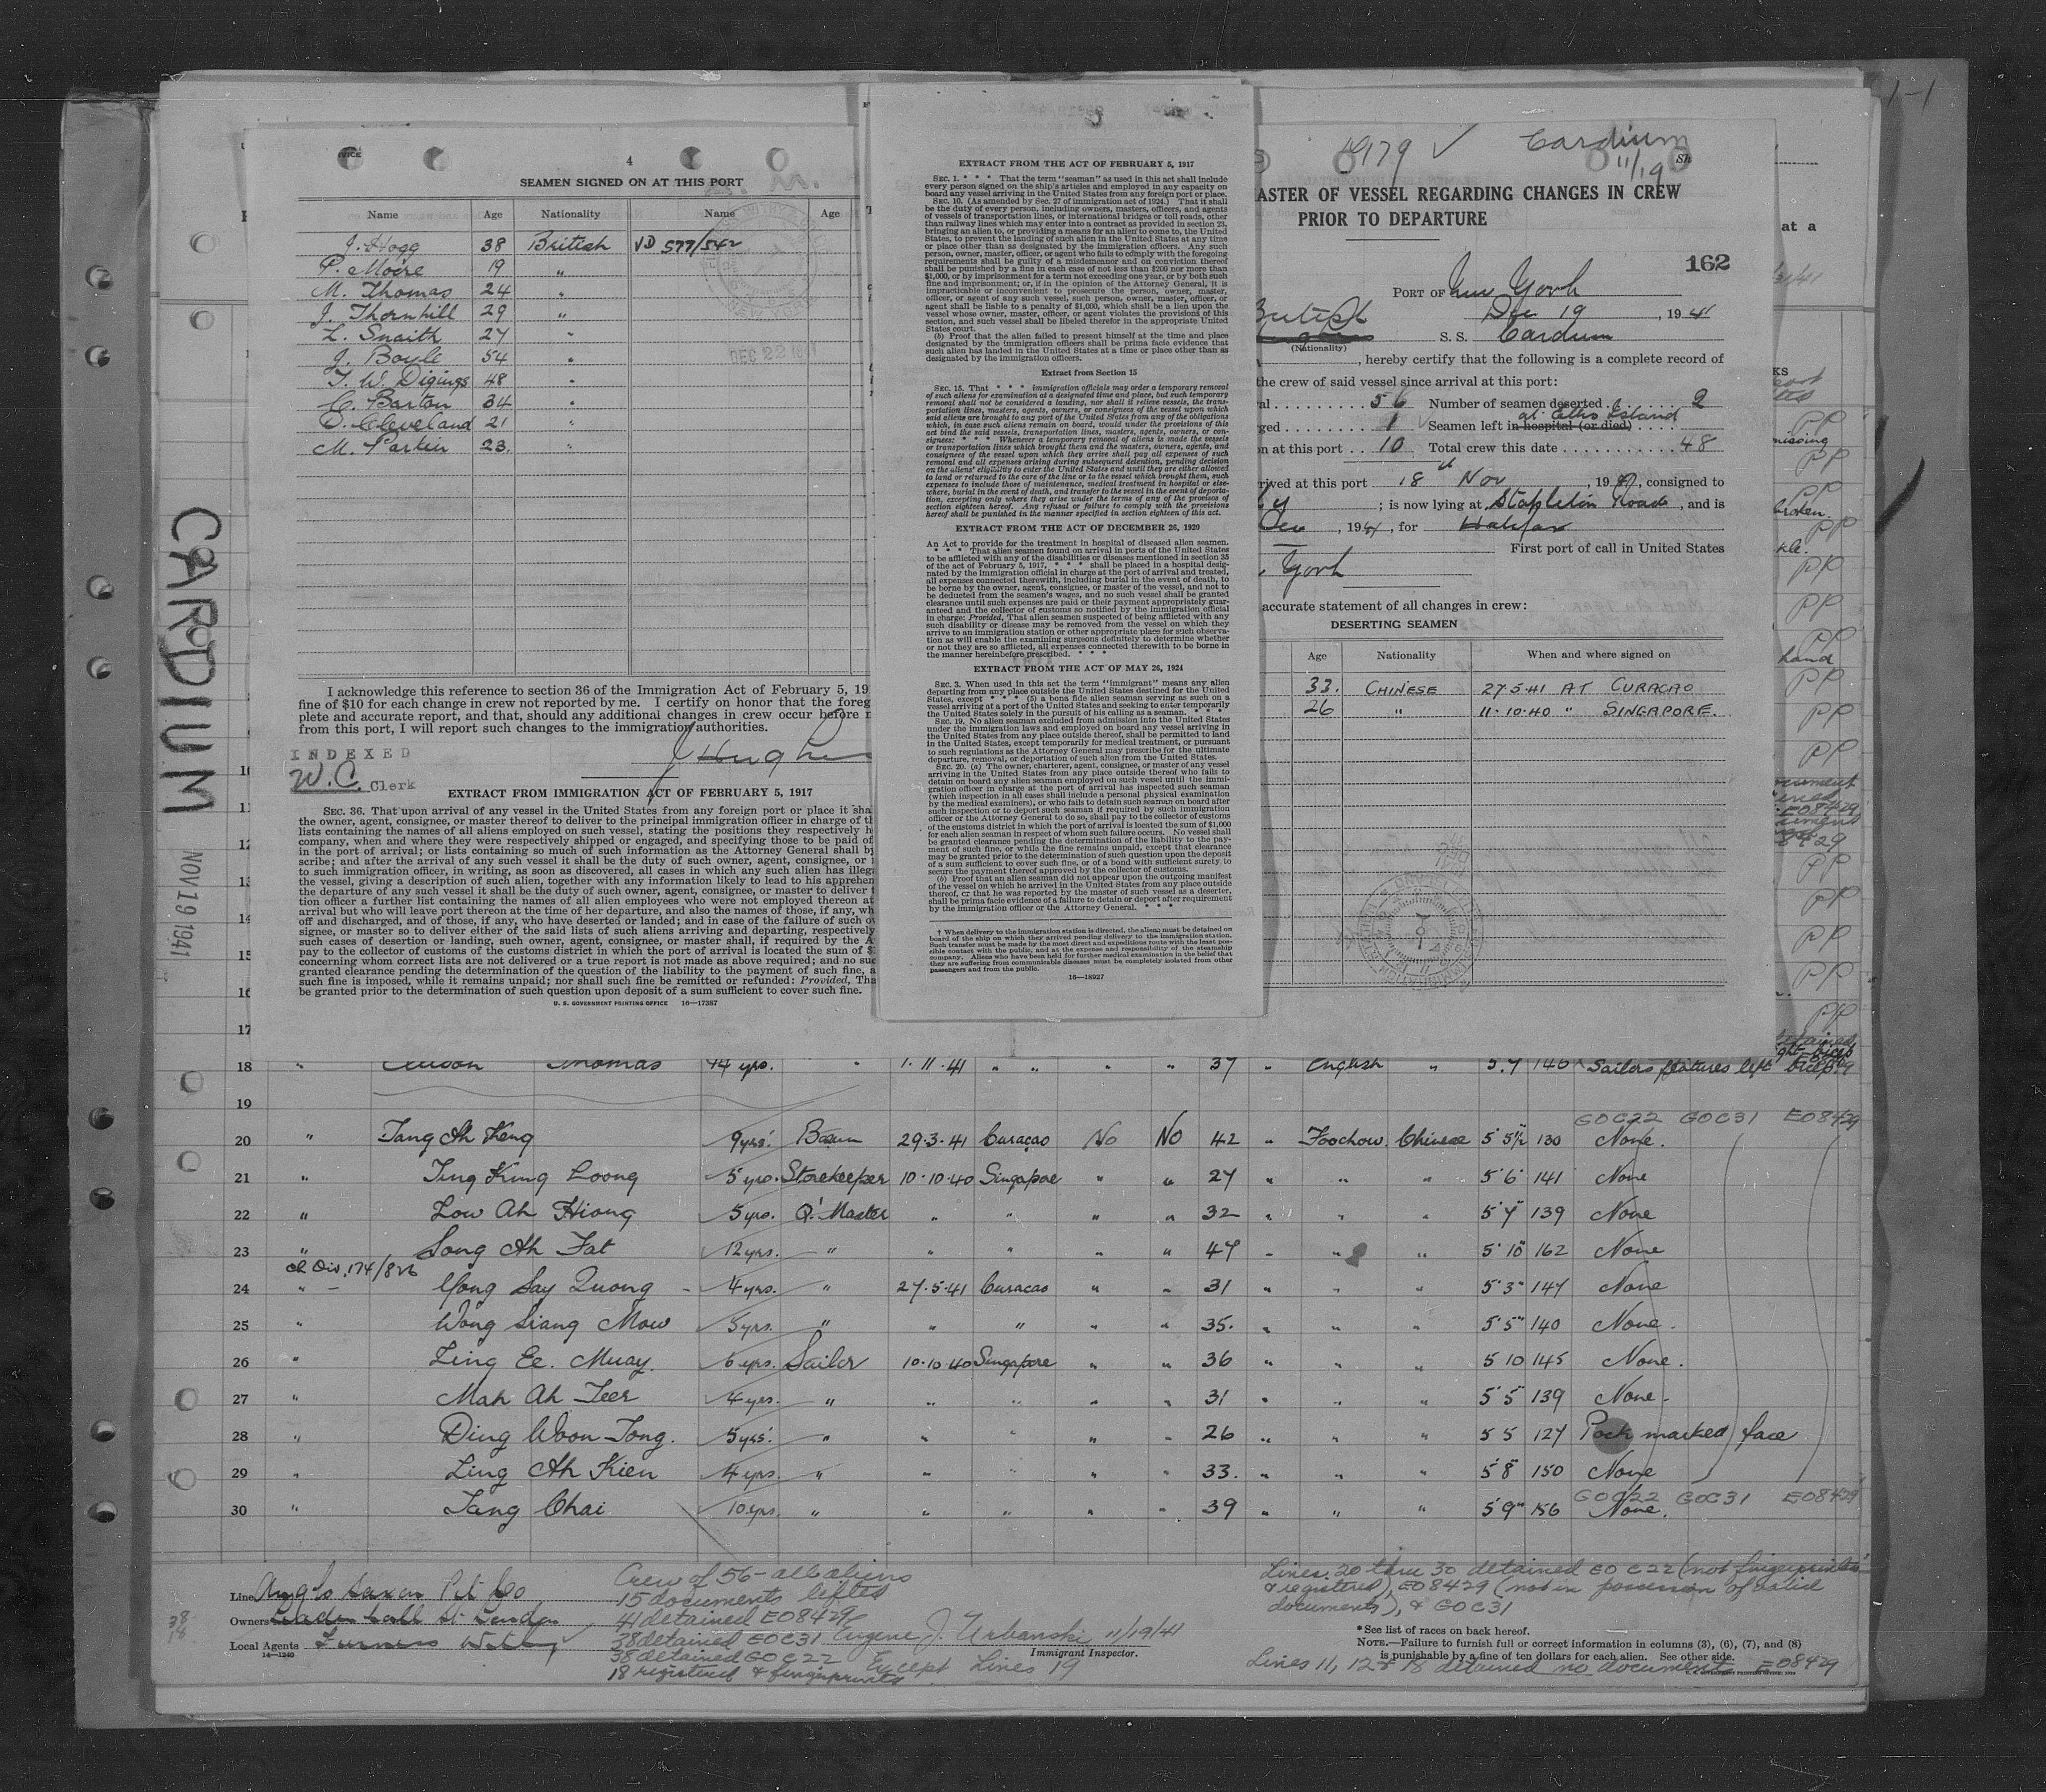 1-1
4
SEAMEN SIGNED ON AT THIS PORT
Name Age Nationality Name Age
J. Hogg 38 British VD 577/542
P. Moore 19 "
M. Thomas 24 "
J. Thornhill 29 "
L. Snaith 27 "
J. Boyle 54 "
T. W. Digings 48 "
C. Barton 34 "
D. Cleveland 21 "
M. Partin 23. "
DEC 22
I acknowledge this reference to section 36 of the Immigration Act of February 5, 19
fine of $10 for each change in crew not reported by me. I certify on honor that the foreg
plete and accurate report, and that, should any additional changes in crew occur before
from this port, I will report such changes to the immigration authorities.
INDEXED
W.C. Clerk
J Hughes
EXTRACT FROM IMMIGRATION ACT OF FEBRUARY 5, 1917
SEC. 36. That upon arrival of any vessel in the United States from any foreign port or place it sha
the owner, agent, consignee, or master thereof to deliver to the principal immigration officer in charge of th
lists containing the names of all aliens employed on such vessel, stating the positions they respectively h
company, when and where they were respectively shipped or engaged, and specifying those to be paid of
in the port of arrival; or lists containing so much of such information as the Attorney General shall by
scribe; and after the arrival of any such vessel it shall be the duty of such owner, agent, consignee, or
to such immigration officer, in writing, as soon as discovered, all cases in which any such alien has illeg
the vessel, giving a description of such alien, together with any information likely to lead to his apprehen
the departure of any such vessel it shall be the duty of such owner, agent, consignee, or master to deliver
tion officer a further list containing the names of all alien employees who were not employed thereon at
arrival but who will leave port thereon at the time of her departure, and also the names of those, if any, wh
off and discharged, and of those, if any, who have deserted or landed; and in case of the failure of such o
signee, or master so to deliver either of the said lists of such aliens arriving and departing, respectively
such cases of desertion or landing, such owner, agent, consignee, or master shall, if required by the A
pay to the collector of customs of the customs district in which the port of arrival is located the sum of $
concerning whom correct lists are not delivered or a true report is not made as above required; and no suc
granted clearance pending the determination of the question of the liability to the payment of such fine, a
such fine is imposed, while it remains unpaid; nor shall such fine be remitted or refunded: Provided, Tha
be granted prior to the determination of such question upon deposit of a sum sufficient to cover such fine.
U. S. GOVERNMENT PRINTING OFFICE 16—17387
EXTRACT FROM THE ACT OF FEBRUARY 5, 1917
SEC. 1. * * * That the term "seaman" as used in this act shall include
every person signed on the ship's articles and employed in any capacity on
board any vessel arriving in the United States from any foreign port or place.
SEC. 10. (As amended by Sec. 27 of immigration act of 1924.) That it shall
be the duty of every person, including owners, masters, officers, and agents
of vessels of transportation lines, or international bridges or toll roads, other
than railway lines which may enter into a contract as provided in section 23,
bringing an alien to, or providing a means for an alien to come to, the United
States, to prevent the landing of such alien in the United States at any time
or place other than as designated by the immigration officers. Any such
person, owner, master, officer, or agent who fails to comply with the foregoing
requirements shall be guilty of a misdemeanor and on conviction thereof
shall be punished by a fine in each case of not less than $200 nor more than
$1,000, or by imprisonment for a term not exceeding one year, or by both such
fine and imprisonment; or, if in the opinion of the Attorney General, it is
impracticable or inconvenient to prosecute the person, owner, master,
officer, or agent of any such vessel, such person, owner, master, officer, or
agent shall be liable to a penalty of $1,000, which shall be a lien upon the
vessel whose owner, master, officer, or agent violates the provisions of this
section, and such vessel shall be libeled therefor in the appropriate United
States court.
(b) Proof that the alien failed to present himself at the time and place
designated by the immigration officers shall be prima facie evidence that
such alien has landed in the United States at a time or place other than as
designated by the immigration officers.
Extract from Section 15
SEC. 15. That * * * immigration officials may order a temporary removal
of such aliens for examination at a designated time and place, but such temporary
removal shall not be considered a landing, nor shall it relieve vessels, the trans-
portation lines, masters, agents, owners, or consignees of the vessel upon which
said aliens are brought to any port of the United States from any of the obligations
which, in case such aliens remain on board, would under the provisions of this
act bind the said vessels, transportation lines, masters, agents, owners, or con-
signees: * * * Whenever a temporary removal of aliens is made the vessels
or transportation lines which brought them and the masters, owners, agents, and
consignees of the vessel upon which they arrive shall pay all expenses of such
removal and all expenses arising during subsequent detention, pending decision
on the aliens' eligibility to enter the United States and until they are either allowed
to land or returned to the care of the line or to the vessel which brought them, such
expenses to include those of maintenance, medical treatment in hospital or else-
where, burial in the event of death, and transfer to the vessel in the event of deporta-
tion, excepting only where they arise under the terms of any of the provisos of
section eighteen hereof. Any refusal or failure to comply with the provisions
hereof shall be punished in the manner specified in section eighteen of this act.
EXTRACT FROM THE ACT OF DECEMBER 26, 1920
An Act to provide for the treatment in hospital of diseased alien seamen.
* * * That alien seamen found on arrival in ports of the United States
to be afflicted with any of the disabilities or diseases mentioned in section 35
of the act of February 5, 1917, * * * shall be placed in a hospital desig-
nated by the immigration official in charge at the port of arrival and treated,
all expenses connected therewith, including burial in the event of death, to
be borne by the owner, agent, consignee, or master of the vessel, and not to
be deducted from the seamen's wages, and no such vessel shall be granted
clearance until such expenses are paid or their payment appropriately guar-
anteed and the collector of customs so notified by the immigration official
in charge: Provided, That alien seamen suspected of being afflicted with any
such disability or disease may be removed from the vessel on which they
arrive to an immigration station or other appropriate place for such observa-
tion as will enable the examining surgeons definitely to determine whether
or not they are so afflicted, all expenses connected therewith to be borne in
the manner hereinbefore prescribed. * * *
EXTRACT FROM THE ACT OF MAY 26, 1924
SEC. 3. When used in this act the term "immigrant" means any alien
departing from any place outside the United States destined for the United
States, except * * * (5) a bona fide alien seaman serving as such on a
vessel arriving at a port of the United States and seeking to enter temporarily
the United States solely in the pursuit of his calling as a seaman. * * *
SEC. 19. No alien seaman excluded from admission into the United States
under the immigration laws and employed on board any vessel arriving in
the United States from any place outside thereof, shall be permitted to land
in the United States, except temporarily for medical treatment, or pursuant
to such regulations as the Attorney General may prescribe for the ultimate
departure, removal, or deportation of such alien from the United States.
SEC. 20. (a) The owner, charterer, agent, consignee, or master of any vessel
arriving in the United States from any place outside thereof who fails to
detain on board any alien seaman employed on such vessel until the immi-
gration officer in charge at the port of arrival has inspected such seaman
(which inspection in all cases shall include a personal physical examination
by the medical examiners), or who fails to detain such seaman on board after
such inspection or to deport such seaman if required by such immigration
officer or the Attorney General to do so, shall pay to the collector of customs
of the customs district in which the port of arrival is located the sum of $1,000
for each alien seaman in respect of whom such failure occurs. No vessel shall
be granted clearance pending the determination of the liability to the pay-
ment of such fine, or while the fine remains unpaid, except that clearance
may be granted prior to the determination of such question upon the deposit
of a sum sufficient to cover such fine, or of a bond with sufficient surety to
secure the payment thereof approved by the collector of customs.
(b) Proof that an alien seaman did not appear upon the outgoing manifest
of the vessel on which he arrived in the United States from any place outside
thereof, or that he was reported by the master of such vessel as a deserter,
shall be prima facie evidence of a failure to detain or deport after requirement
by the immigration officer or the Attorney General. * * *
† When delivery to the immigration station is directed, the aliens must be detained on
board of the ship on which they arrived pending delivery to the immigration station.
Such transfer must be made by the most direct and expeditious route with the least pos-
sible contact with the public, and at the expense and responsibility of the steamship
company. Aliens who have been held for further medical examination in the belief that
they are suffering from communicable diseases must be completely isolated from other
passengers and from the public.
16—18927
4979 ✓ Cardium
11/19 Sh
ASTER OF VESSEL REGARDING CHANGES IN CREW
PRIOR TO DEPARTURE
162
PORT OF New York
British Dec 19, 1941
(Nationality) S. S. Cardium
, hereby certify that the following is a complete record of
the crew of said vessel since arrival at this port:
al 56 Number of seamen deserted 2
ged 1 Seamen left in hospital (or died) at Ellis Island
n at this port 10 Total crew this date 48
rived at this port 18th Nov, 19 , consigned to
; is now lying at Stapleton Roads, and is
Dec, 1941, for Halifax
First port of call in United States
York
accurate statement of all changes in crew:
DESERTING SEAMEN
Age Nationality When and where signed on
33. CHINESE 27.5.41 AT CURACAO
26 " 11.10.40 " SINGAPORE.
at a
CARDIUM
NOV 19 1941
18 " Thomas 14 yrs. " 1.11.41 " " " " 37 " English " 5.7 140 Sailors left bicep
19
GOC22 GOC31 E08429
20 " Tang Ah Keng 9yrs. Bosun 29.3.41 Curaçao No No 42 " Foochow Chinese 5'5½ 130 None.
21 " Ting Kung Loong 5 yrs. Storekeeper 10.10.40 Singapore " " 27 " " " 5'6" 141 None
22 " Low Ah Hiong 5yrs. Q. Master " " " " 32 " " " 5'7" 139 None
23 " Song Ah Fat 12yrs. " " " " " 47 " " " 5'10" 162 None
174/826
24 " Yong Say Quong 4yrs. " 27.5.41 Curacao " " 31 " " " 5'3" 147 None
25 " Wong Siang Mow 5yrs. " " " " " 35. " " " 5'5" 140 None.
26 " Ling Ee. Muay. 6 yrs. Sailor 10.10.40 Singapore " " 36 " " " 5 10 145 None.
27 " Mah Ah Teer 4 yrs. " " " " " 31 " " " 5'5" 139 None.
28 " Ding Woon Tong. 5yrs. " " " " " 26 " " " 5 5 127 Pock marked face
29 " Ling Ah Kien 4yrs. " " " " " 33. " " " 5'8" 150 None
GOC22 GOC31 E08429
30 " Tang Chai 10yrs. " " " " " 39 " " " 5'9" 156 None.
Line Anglo Saxon Pet Co
Owners Leadenhall St London
Local Agents Furness Withy
14—1240
Crew of 56 - all aliens
15 documents lifted
41 detained E08429
38 detained EOC31 Eugene J. Urbanski 11/19/41
Immigrant Inspector.
38 detained GOC22 Except Lines 19
18 registered & fingerprinted
Lines 20 thru 30 detained EO C22 (not fingerprinted
& registered), E08429 (not in possession of valid
documents), & GOC31
*See list of races on back hereof.
NOTE.—Failure to furnish full or correct information in columns (3), (6), (7), and (8)
is punishable by a fine of ten dollars for each alien. See other side.
Lines 11, 12 & 18 detained no documents E08429